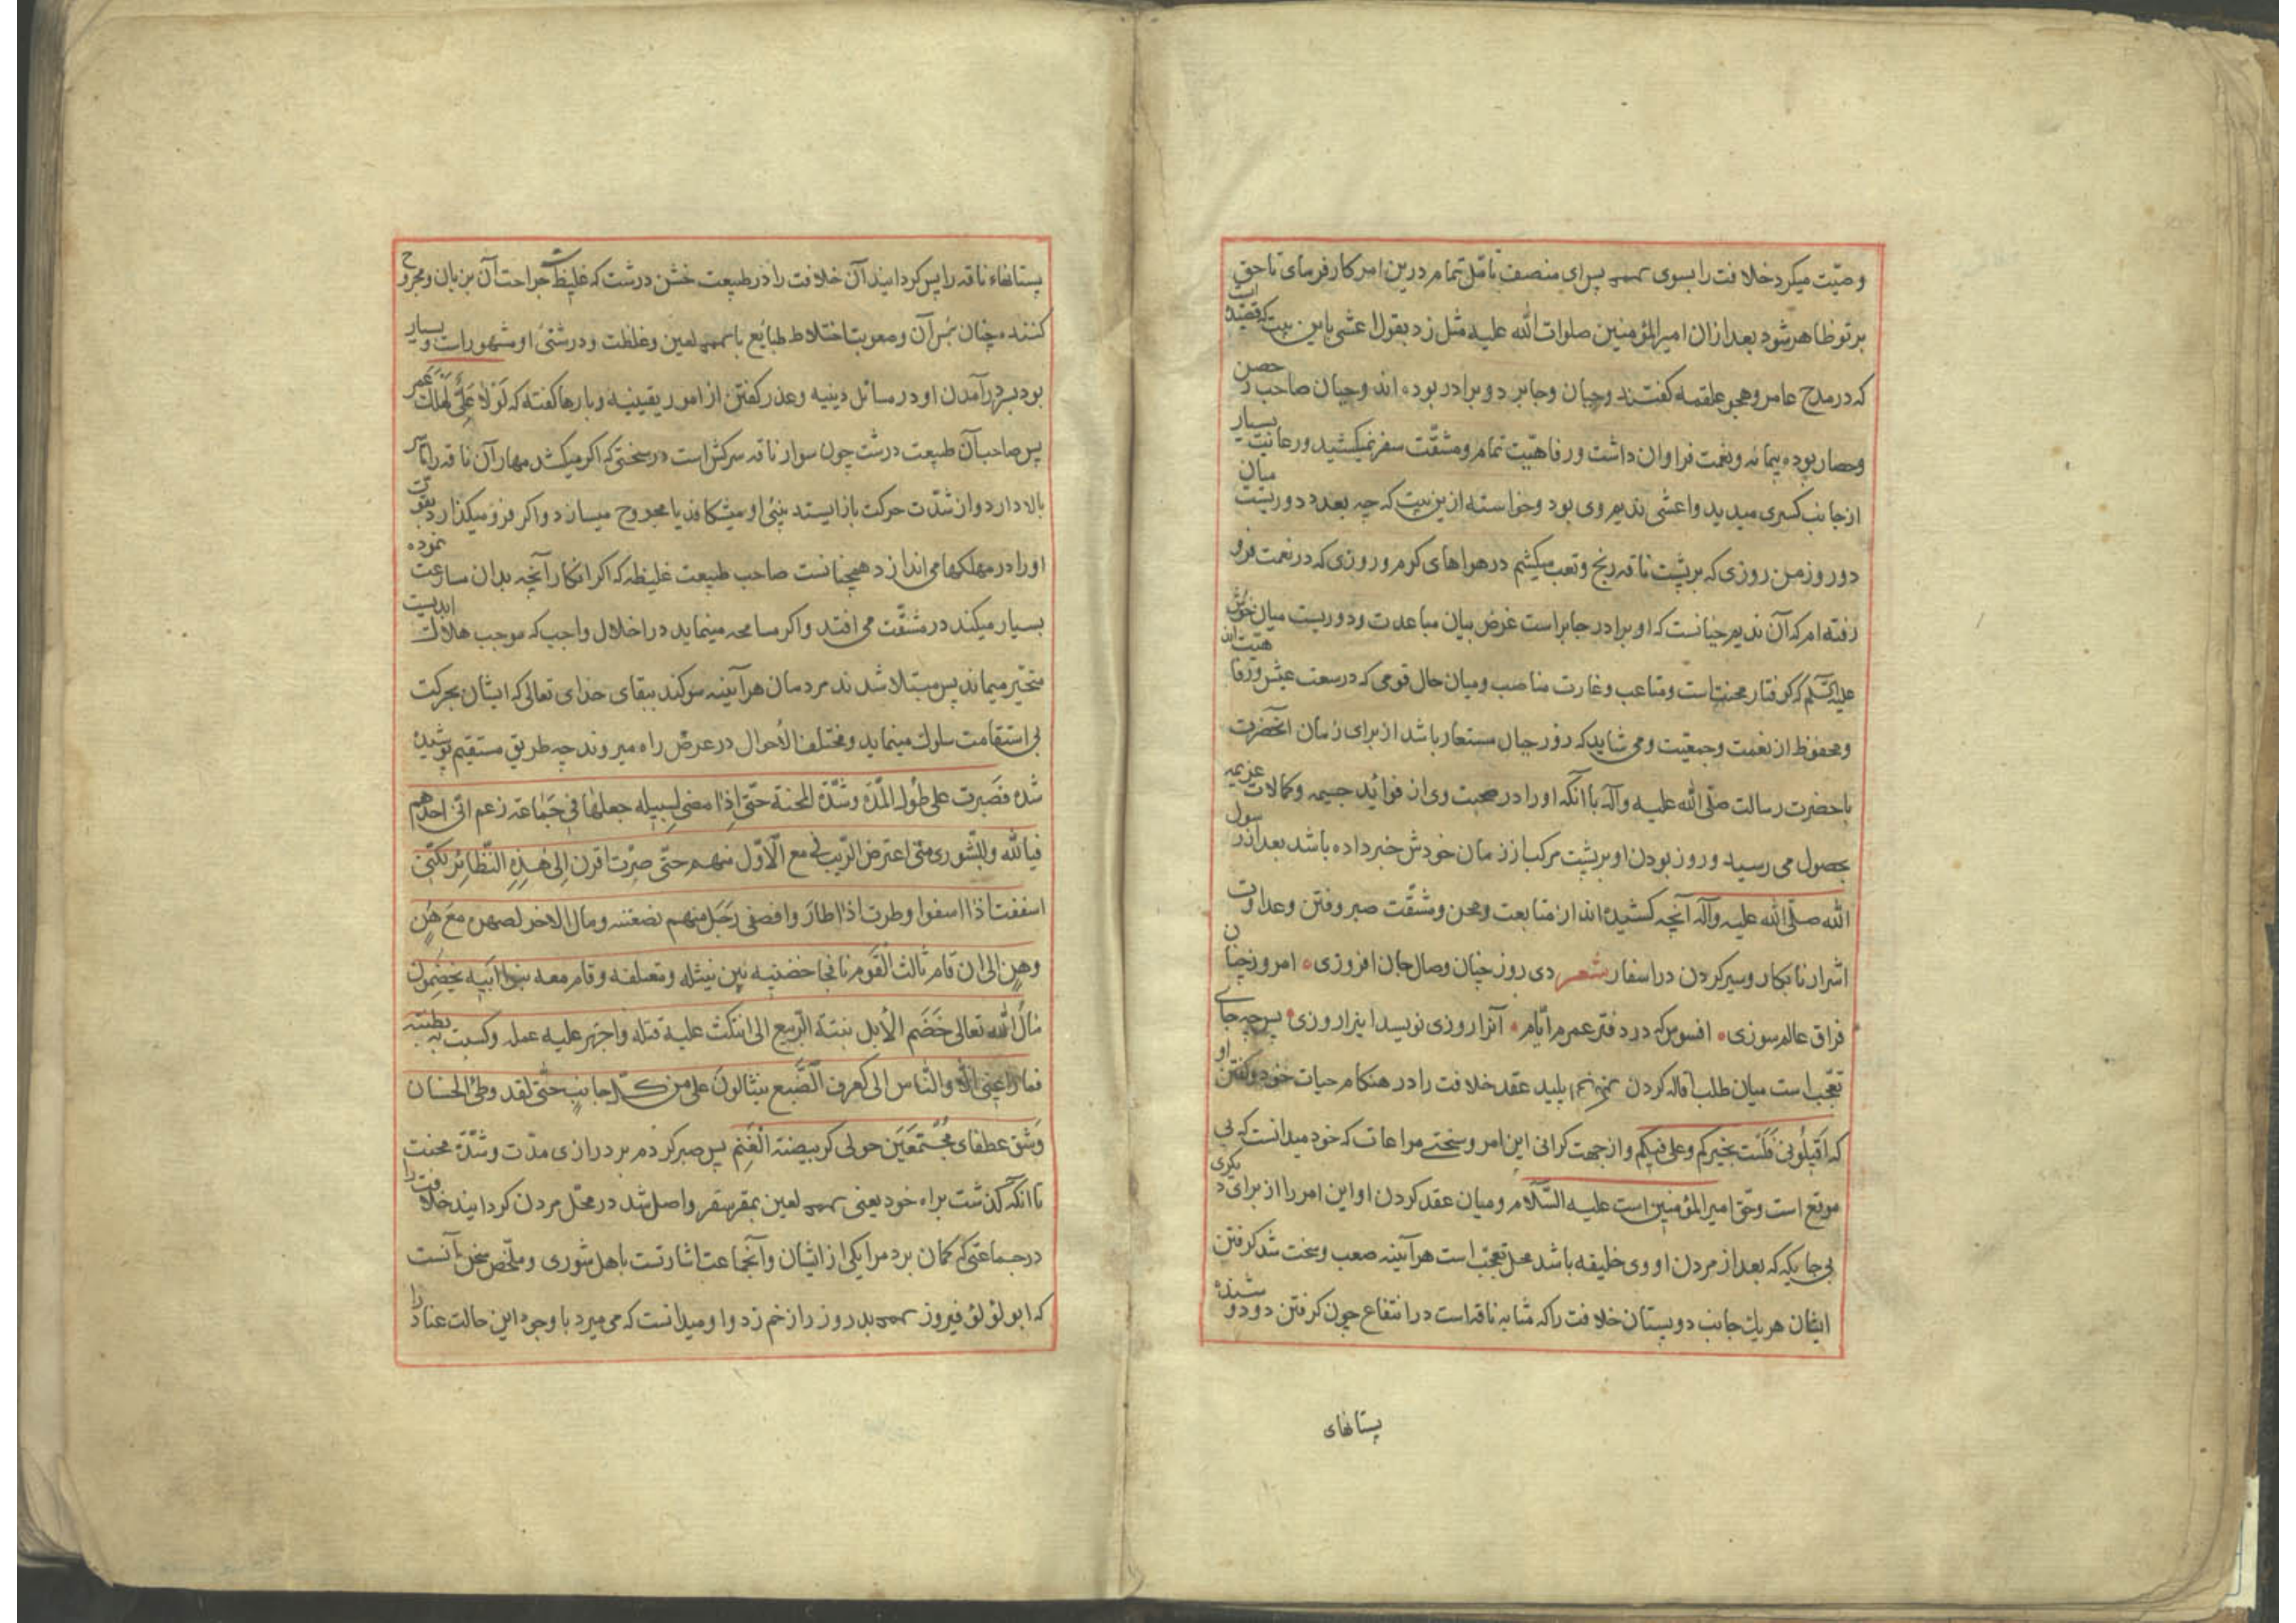 وصیّت میکرد خلافت را بسوی پس ای منصف تامّل تمام درین امر کار فرمای تا حق
بر تو ظاهر شود بعد ازان امیرالمؤمنین صلوات الله علیه مثل زد بقول اعشی باین بیت که قصیده است
که در مدح عامر و هجو علقمه گفتند و حیان و جابر دو برادر بوده اند و حیان صاحب حصن
و حصار بوده بیمامه و نعمت فراوان داشت و رفاهیّت تمام و مشقّت سفر نمیکشید و رعایت بسیار
از جانب کسری میدید و اعشی ندیم وی بود و خواسته ازین بیت که چه بعد و دوریست میان
دو روز من روزی که بر پشت ناقه رنج و تعب میکشم در هواهای کرم و روزی که در نعمت فرو
رفته ام که آن ندیم حیانست که او برادر جابر است غرض بیان مباعدت و دوریست میان خوش
علیه السّلم که کرفتار محنت است و متاعب و غارت مناصب و میان حال قومی که در سعت عیش و رفاهیّت اند
و محفوظ از نعمت و جمعیّت و می شاید که روز حیان مستعار باشد از برای زمان آنحضرت
با حضرت رسالت صلّی الله علیه و آله با آنکه او را در صحبت وی از فواید جسیمه و کمالات عزیمه
بحصول می رسید و روز بودن او بر پشت مرکب از زمان خودش خبر داده باشد بعد از رسول
الله صلّی الله علیه و آله آنچه کشیده اند از متابعت و محن و مشقّت صبر و فتن و عداوت
اشرار نابکار و سیر کردن در اسفار شعر دی روز چنان وصال جان افروزی امروز چنان
فراق عالم سوزی افسوس که در دفتر عمرم ایّام آنرا روزی نویسد اینرا روزی پس چه جای
تعجّب است میان طلب اقاله کردن پلید عقد خلافت را در هنکام حیات خود و کفتن او
که اَقیلُونی فَلَستُ بخیرکم و علی فیکم و از جهت کرانی این امر و سختی مراعات که خود میدانست که بی
موقع است و حق امیرالمؤمنین است علیه السّلام و میان عقد کردن او این امر را از برای دیکری
بی جایکه که بعد از مردن او وی خلیفه باشد محل تعجّب است هرآینه صعب و سخت شد کرفتن
ایشان هر یك جانب دو پستان خلافت را که مشابه ناقه است در انتفاع چون کرفتن دو دوشنده
پستانهای
پستانهاء ناقه را پس کردانید آن خلافت را در طبیعت خشن درشت که غلیظ است جراحت آن بزبان و مجروح
کننده چنان مس آن و صعوبت اختلاط طبایع با لعین و غلظت و درشتی او مشهور است و بسیار
بود بسر درآمدن او در مسائل دینیه و عذر کفتن از امور یقینیه و بارها کفته که لَولا عَلِیٌّ لَهَلَك عُمَر
پس صاحب آن طبیعت درشت چون سوار ناقه سرکش است در سختی که اکر میکشد مهار آن ناقه را تا سر
بالا دارد و از شدّت حرکت باز ایستد بینی او میشکافد یا مجروح میسازد و اکر فرو میکذارد بقوّت
او را در مهلکها می اندازد همچنانست صاحب طبیعت غلیظه که اکر انکار آنچه بدان مسارعت نموده
بسیار میکند در مشقّت می افتد و اکر مسامحه مینماید در اخلال واجب که موجب هلاك ابدیست
متحیّر میماند پس مبتلا شدند مردمان هرآینه سوکند ببقای خدای تعالی که ایشان بحرکت
بی استقامت سلوك مینماید و مختلف الاحوال در عرض راه میروند چه طریق مستقیم پوشیده
شده فصَبَرت علی طُول المدّة و شدّة المحنة حتّی اِذا مضی لِسبیله جعلها فی جَماعة زعم انّی احدهم
فیالله و للشّوری متی اعترض الرّیب فیّ مع الاوّل منهم حتّی صِرت اقرَن اِلی هذِهِ النّظائر لکنّی
اسففت اذا اسفوا و طرت اذا طارَ و افصغی رَجل منهم لضغنه و مال الاخر لصهره مَع هَنٍ
و هنٍ الی ان قام ثالث القَوم نافجا حضنیه بین نیثله و معتلفه و قام معه بنوا ابیه یخضِمون
مال الله تعالی خَضَم الابل نبتة الرّبیع الی انتکث علیه فتله و اجهز علیه عمله و کسبت به بطنته
فما راعنی الّا و النّاس الی کعرف الضّبع ینثالونَ علی من کلّ جانبٍ حتّی لقد وطئ الحسنان
و شق عطفای مجتمعَین حولی کربیضة الغنم پس صبر کردم بر درازی مدّت و شدّة محنت
تا آنکه کذشت براه خود یعنی لعین بمقر سقر واصل شد در محلّ مردن کردانید خلافت را
در جماعتی که کمان برد مرا یکی از ایشان و آنجماعت اشارتست باهل شوری و ملخّص سخن آنست
که ابو لؤلؤ فیروز بدروز را زخم زد و او میدانست که می میرد با وجود این حالت عناد را